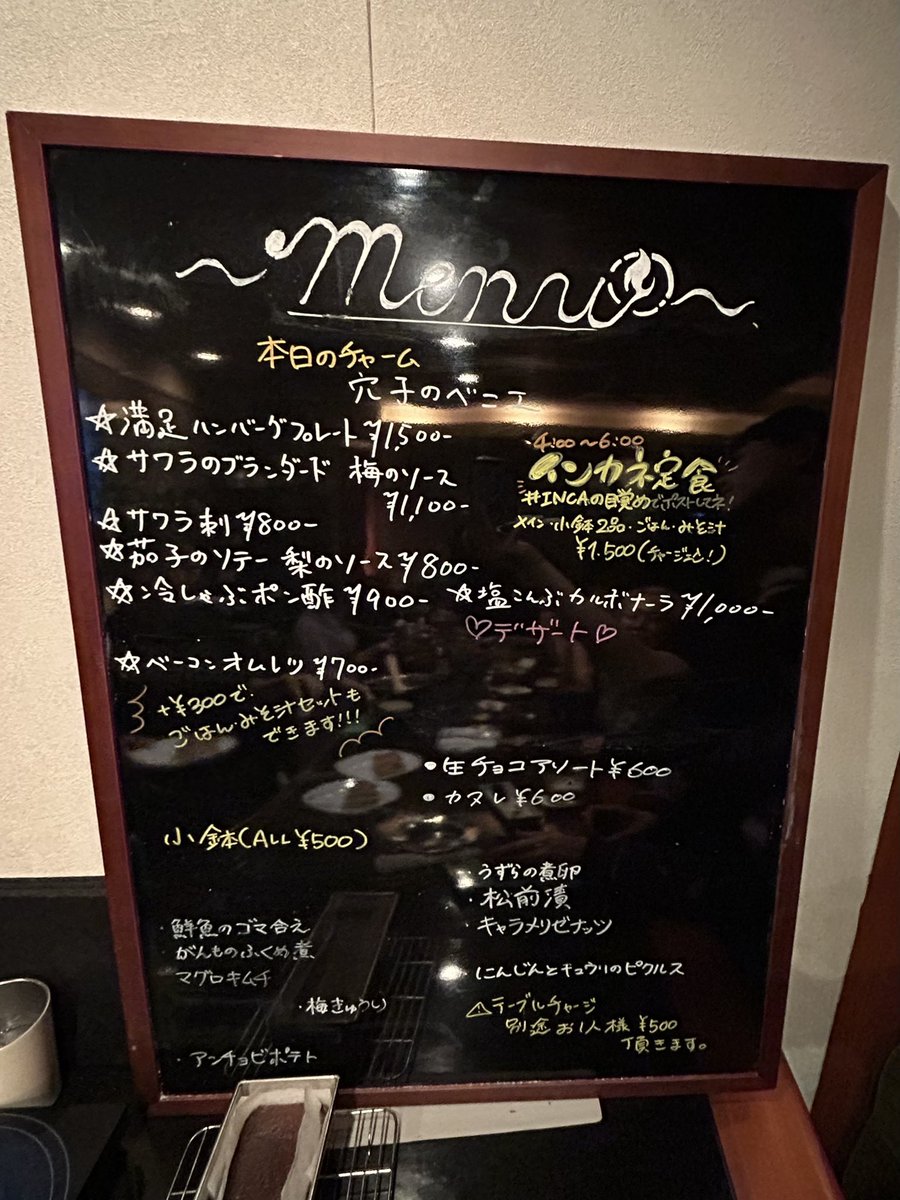 ～Menu～
本日のチャーム
穴子のベニエ
☆満足ハンバーグプレート ¥1,500-
☆サワラのブランダード 梅のソース
¥1,100-
☆サワラ刺 ¥800-
☆茄子のソテー 梨のソース ¥800-
☆冷しゃぶポン酢 ¥900-
☆塩こんぶカルボナーラ ¥1,000-
☆ベーコンオムレツ ¥700-
+¥300で
ごはん・みそ汁セットも
できます!!!
・4:00～6:00
インカネ定食
#INCAの目覚めでポストしてネ!
メイン・小鉢2品・ごはん・みそ汁
¥1,500(チャージ込!)
♡デザート♡
・生チョコアソート ¥600
・カヌレ ¥600
小鉢(ALL ¥500)
・鮮魚のゴマ合え
・がんものふくめ煮
マグロキムチ
・梅きゅうり
・アンチョビポテト
・うずらの煮卵
・松前漬
・キャラメリゼナッツ
・にんじんとキュウリのピクルス
⚠テーブルチャージ
別途お1人様¥500
頂きます。